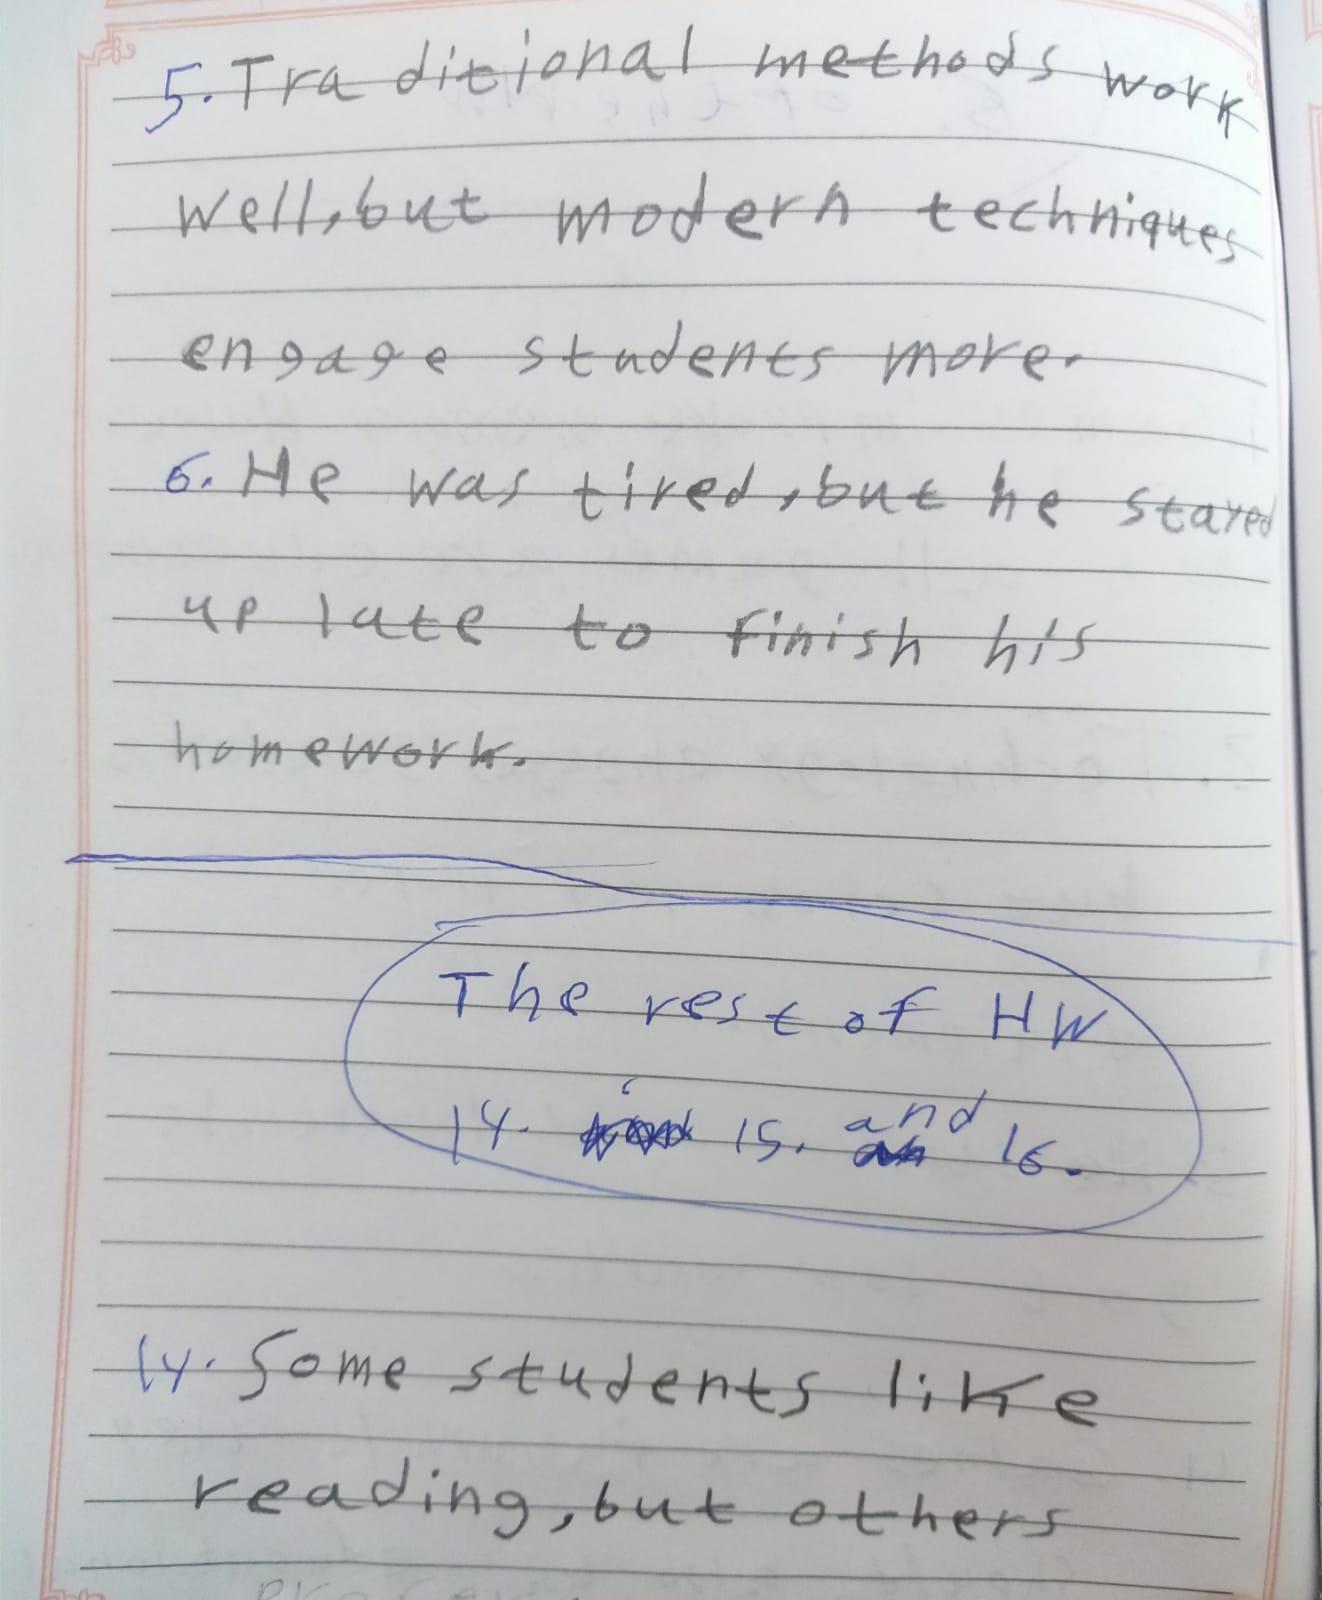 5. Traditional methods work
well, but modern techniques
engage students more.
6. He was tired, but he stayed
up late to finish his
homework.
The rest of HW
14. 15. and 16.
14. Some students like
reading, but others